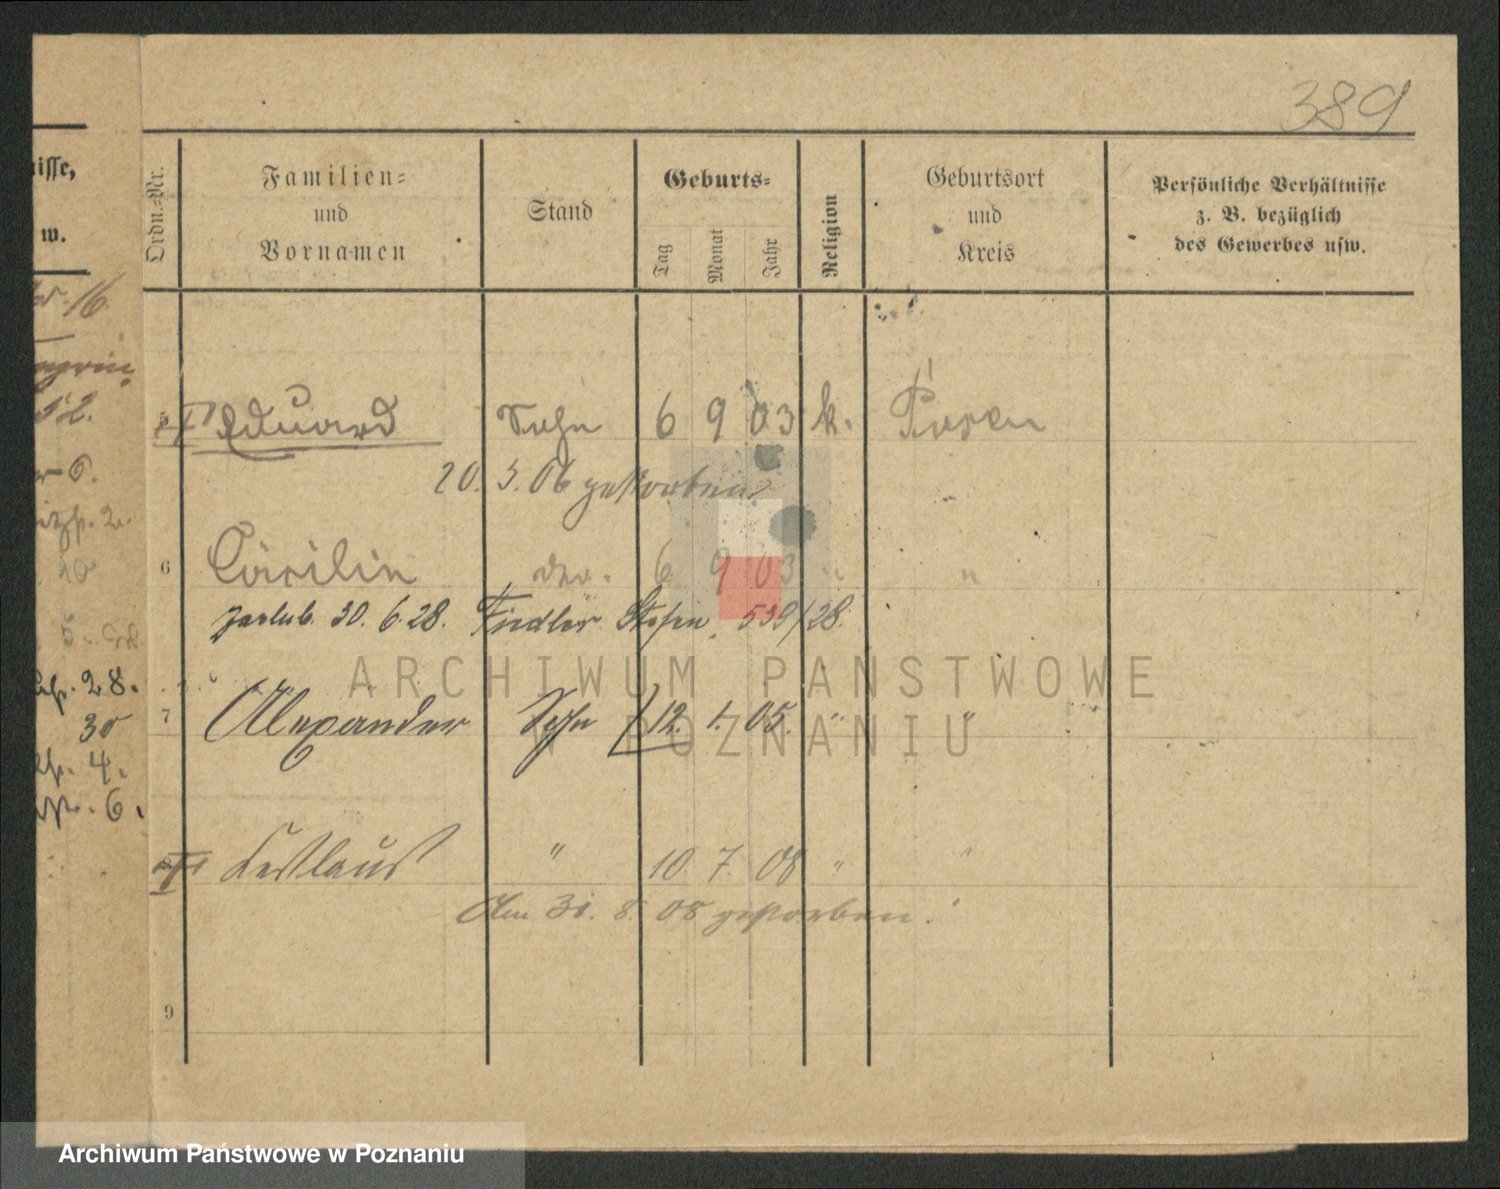 389
isse,
w.
Ordn.-Nr.
Familien-
und
Vornamen
Stand
Geburts-
Tag
Monat
Jahr
Religion
Geburtsort
und
Kreis
Persönliche Verhältnisse
z. B. bezüglich
des Gewerbes usw.
16
2.
6.
2.
28.
30
4.
6.
5 Eduard Sohn 6 9 03 k. Posen
20. 3. 06 gestorben
6 Cäcilie 6 9 03 " "
30. 6. 28. Fiedler Stefan 539/28.
7 Alexander Sohn 12. 1. 05. " "
" 10. 7. 08 " "
Am 30. 8. 08 gestorben.
9
ARCHIWUM PANSTWOWE
W POZNANIU
Archiwum Państwowe w Poznaniu